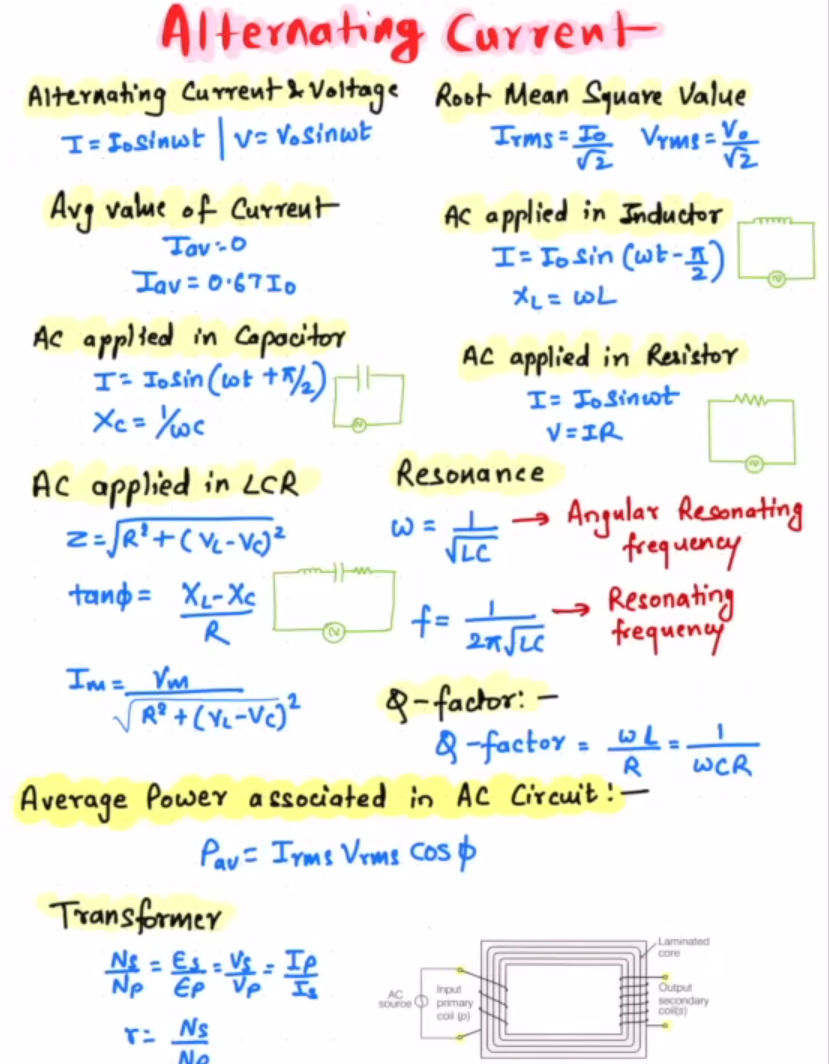 Alternating Current
Alternating Current & Voltage
I = I₀sinωt | V = V₀sinωt
Root Mean Square Value
Irms = I₀/√2 Vrms = V₀/√2
Avg value of Current
Iav = 0
Iav = 0.67I₀
AC applied in Inductor
I = I₀ sin (ωt - π/2)
X_L = ωL
AC applied in Capacitor
I = I₀sin(ωt + π/2)
Xc = 1/ωC
AC applied in Resistor
I = I₀sinωt
V = IR
AC applied in LCR
Z = √R² + (V_L - V_C)²
tanϕ = X_L - X_C / R
Im = Vm / √R² + (V_L - V_C)²
Resonance
ω = 1/√LC → Angular Resonating frequency
f = 1/2π√LC → Resonating frequency
Q-factor: -
Q-factor = ωL/R = 1/ωCR
Average Power associated in AC Circuit: -
Pav = Irms Vrms cos ϕ
Transformer
Ns/Np = Es/Ep = Vs/Vp = Ip/Is
r = Ns/Np
AC source
Input primary coil (p)
Laminated core
Output secondary coil(s)